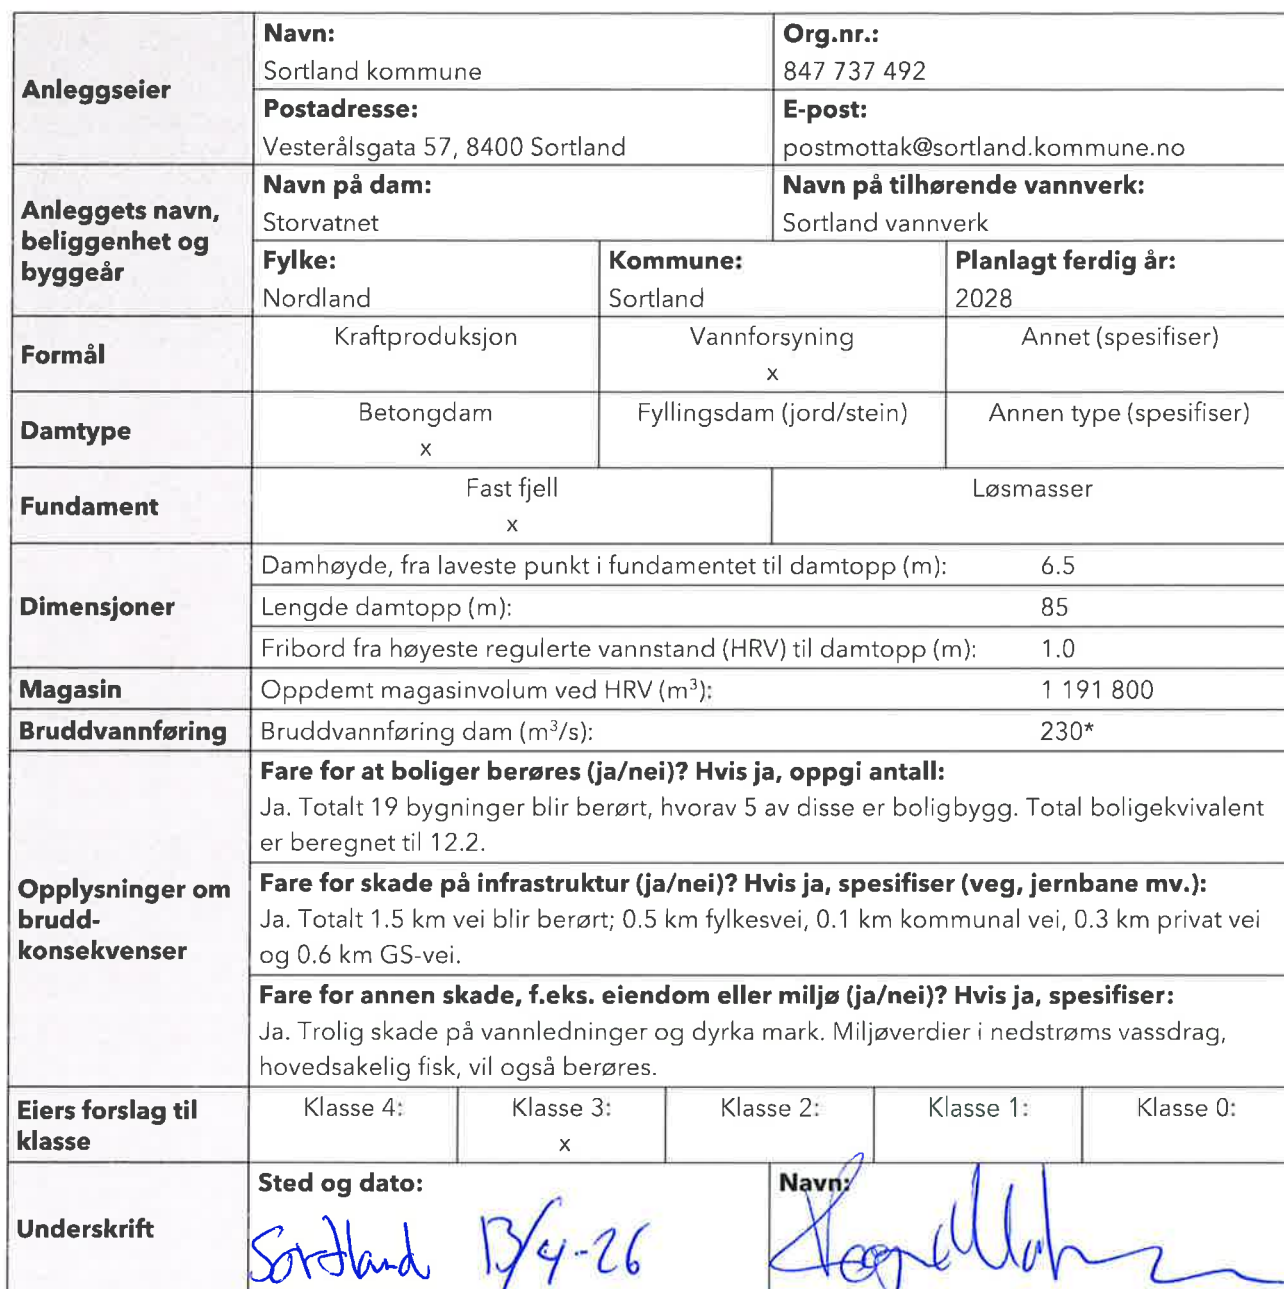 Anleggseier
Navn:
Sortland kommune
Org.nr.:
847 737 492
Postadresse:
Vesterålsgata 57, 8400 Sortland
E-post:
postmottak@sortland.kommune.no
Anleggets navn,
beliggenhet og
byggeår
Navn på dam:
Storvatnet
Navn på tilhørende vannverk:
Sortland vannverk
Fylke:
Nordland
Kommune:
Sortland
Planlagt ferdig år:
2028
Formål
Kraftproduksjon
Vannforsyning
x
Annet (spesifiser)
Damtype
Betongdam
x
Fyllingsdam (jord/stein)
Annen type (spesifiser)
Fundament
Fast fjell
x
Løsmasser
Dimensjoner
Damhøyde, fra laveste punkt i fundamentet til damtopp (m): 6.5
Lengde damtopp (m): 85
Fribord fra høyeste regulerte vannstand (HRV) til damtopp (m): 1.0
Magasin
Oppdemt magasinvolum ved HRV (m³): 1 191 800
Bruddvannføring
Bruddvannføring dam (m³/s): 230*
Opplysninger om
brudd-
konsekvenser
Fare for at boliger berøres (ja/nei)? Hvis ja, oppgi antall:
Ja. Totalt 19 bygninger blir berørt, hvorav 5 av disse er boligbygg. Total boligekvivalent
er beregnet til 12.2.
Fare for skade på infrastruktur (ja/nei)? Hvis ja, spesifiser (veg, jernbane mv.):
Ja. Totalt 1.5 km vei blir berørt; 0.5 km fylkesvei, 0.1 km kommunal vei, 0.3 km privat vei
og 0.6 km GS-vei.
Fare for annen skade, f.eks. eiendom eller miljø (ja/nei)? Hvis ja, spesifiser:
Ja. Trolig skade på vannledninger og dyrka mark. Miljøverdier i nedstrøms vassdrag,
hovedsakelig fisk, vil også berøres.
Eiers forslag til
klasse
Klasse 4:
Klasse 3:
x
Klasse 2:
Klasse 1:
Klasse 0:
Underskrift
Sted og dato:
Sortland 13/4-26
Navn: